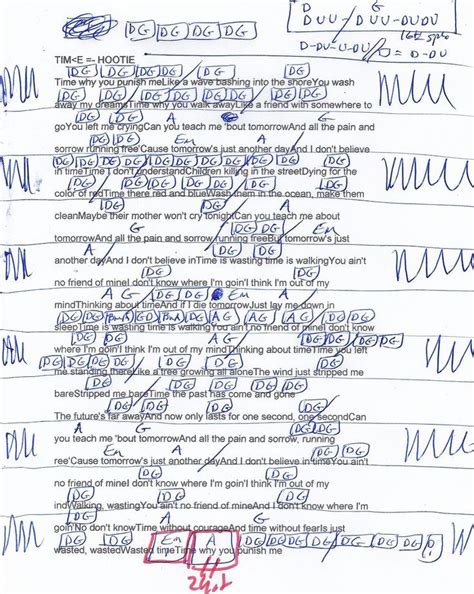 DG DG DG DG
D G
D UU - / D UU - DUDU
16th
D-DU-U-DU / = D-DU
TIM<E =- HOOTIE
DG DG / DG DG / DG / DG
Time why you punish meLike a wave bashing into the shoreYou wash
DG DG / DG DG / DG DG
away my dreamsTime why you walk awayLike a friend with somewhere to
DG A G
goYou left me cryingCan you teach me 'bout tomorrowAnd all the pain and
DG DG Em A
sorrow running free'Cause tomorrow's just another dayAnd I don't believe
DG DG DG DG DG DG DG / DG
in timeTime I don't understandChildren killing in the streetDying for the
DG / DG DG DG
color of redTime there red and blueWash them in the ocean, make them
DG / DG A
cleanMaybe their mother won't cry tonightCan you teach me about
G DG DG
tomorrowAnd all the pain and sorrow running freeBut tomorrow's just
Em A DG
another dayAnd I don't believe inTime is wasting time is walkingYou ain't
DG DG
no friend of mineI don't know where I'm goin'I think I'm out of my
A G / DG DG Em A
mindThinking about timeAnd if I die tomorrowJust lay me down in
AG AG / DG DG
sleepTime is wasting time is walkingYou ain't no friend of mineI don't know
DG A G
where I'm goin'I think I'm out of my mindThinking about timeTime you left
DG DG DG DG / DG DG
me standing thereLike a tree growing all aloneThe wind just stripped me
DG DG DG
bareStripped me bareTime the past has come and gone
DG / DG DG DG
The future's far awayAnd now only lasts for one second, one secondCan
A G
you teach me 'bout tomorrowAnd all the pain and sorrow, running
Em A DG
ree'Cause tomorrow's just another dayAnd I don't believe in timeYou ain't
DG DG
no friend of mineI don't know where I'm goin'I think I'm out of my
DG DG
indWalking, wastingYou ain't no friend of mineAnd I don't know where I'm
DG A G
goin'No don't knowTime without courageAnd time without fearIs just
DG DG Em A DG DG DG DG DG DG D
wasted, wastedWasted timeTime why you punish me